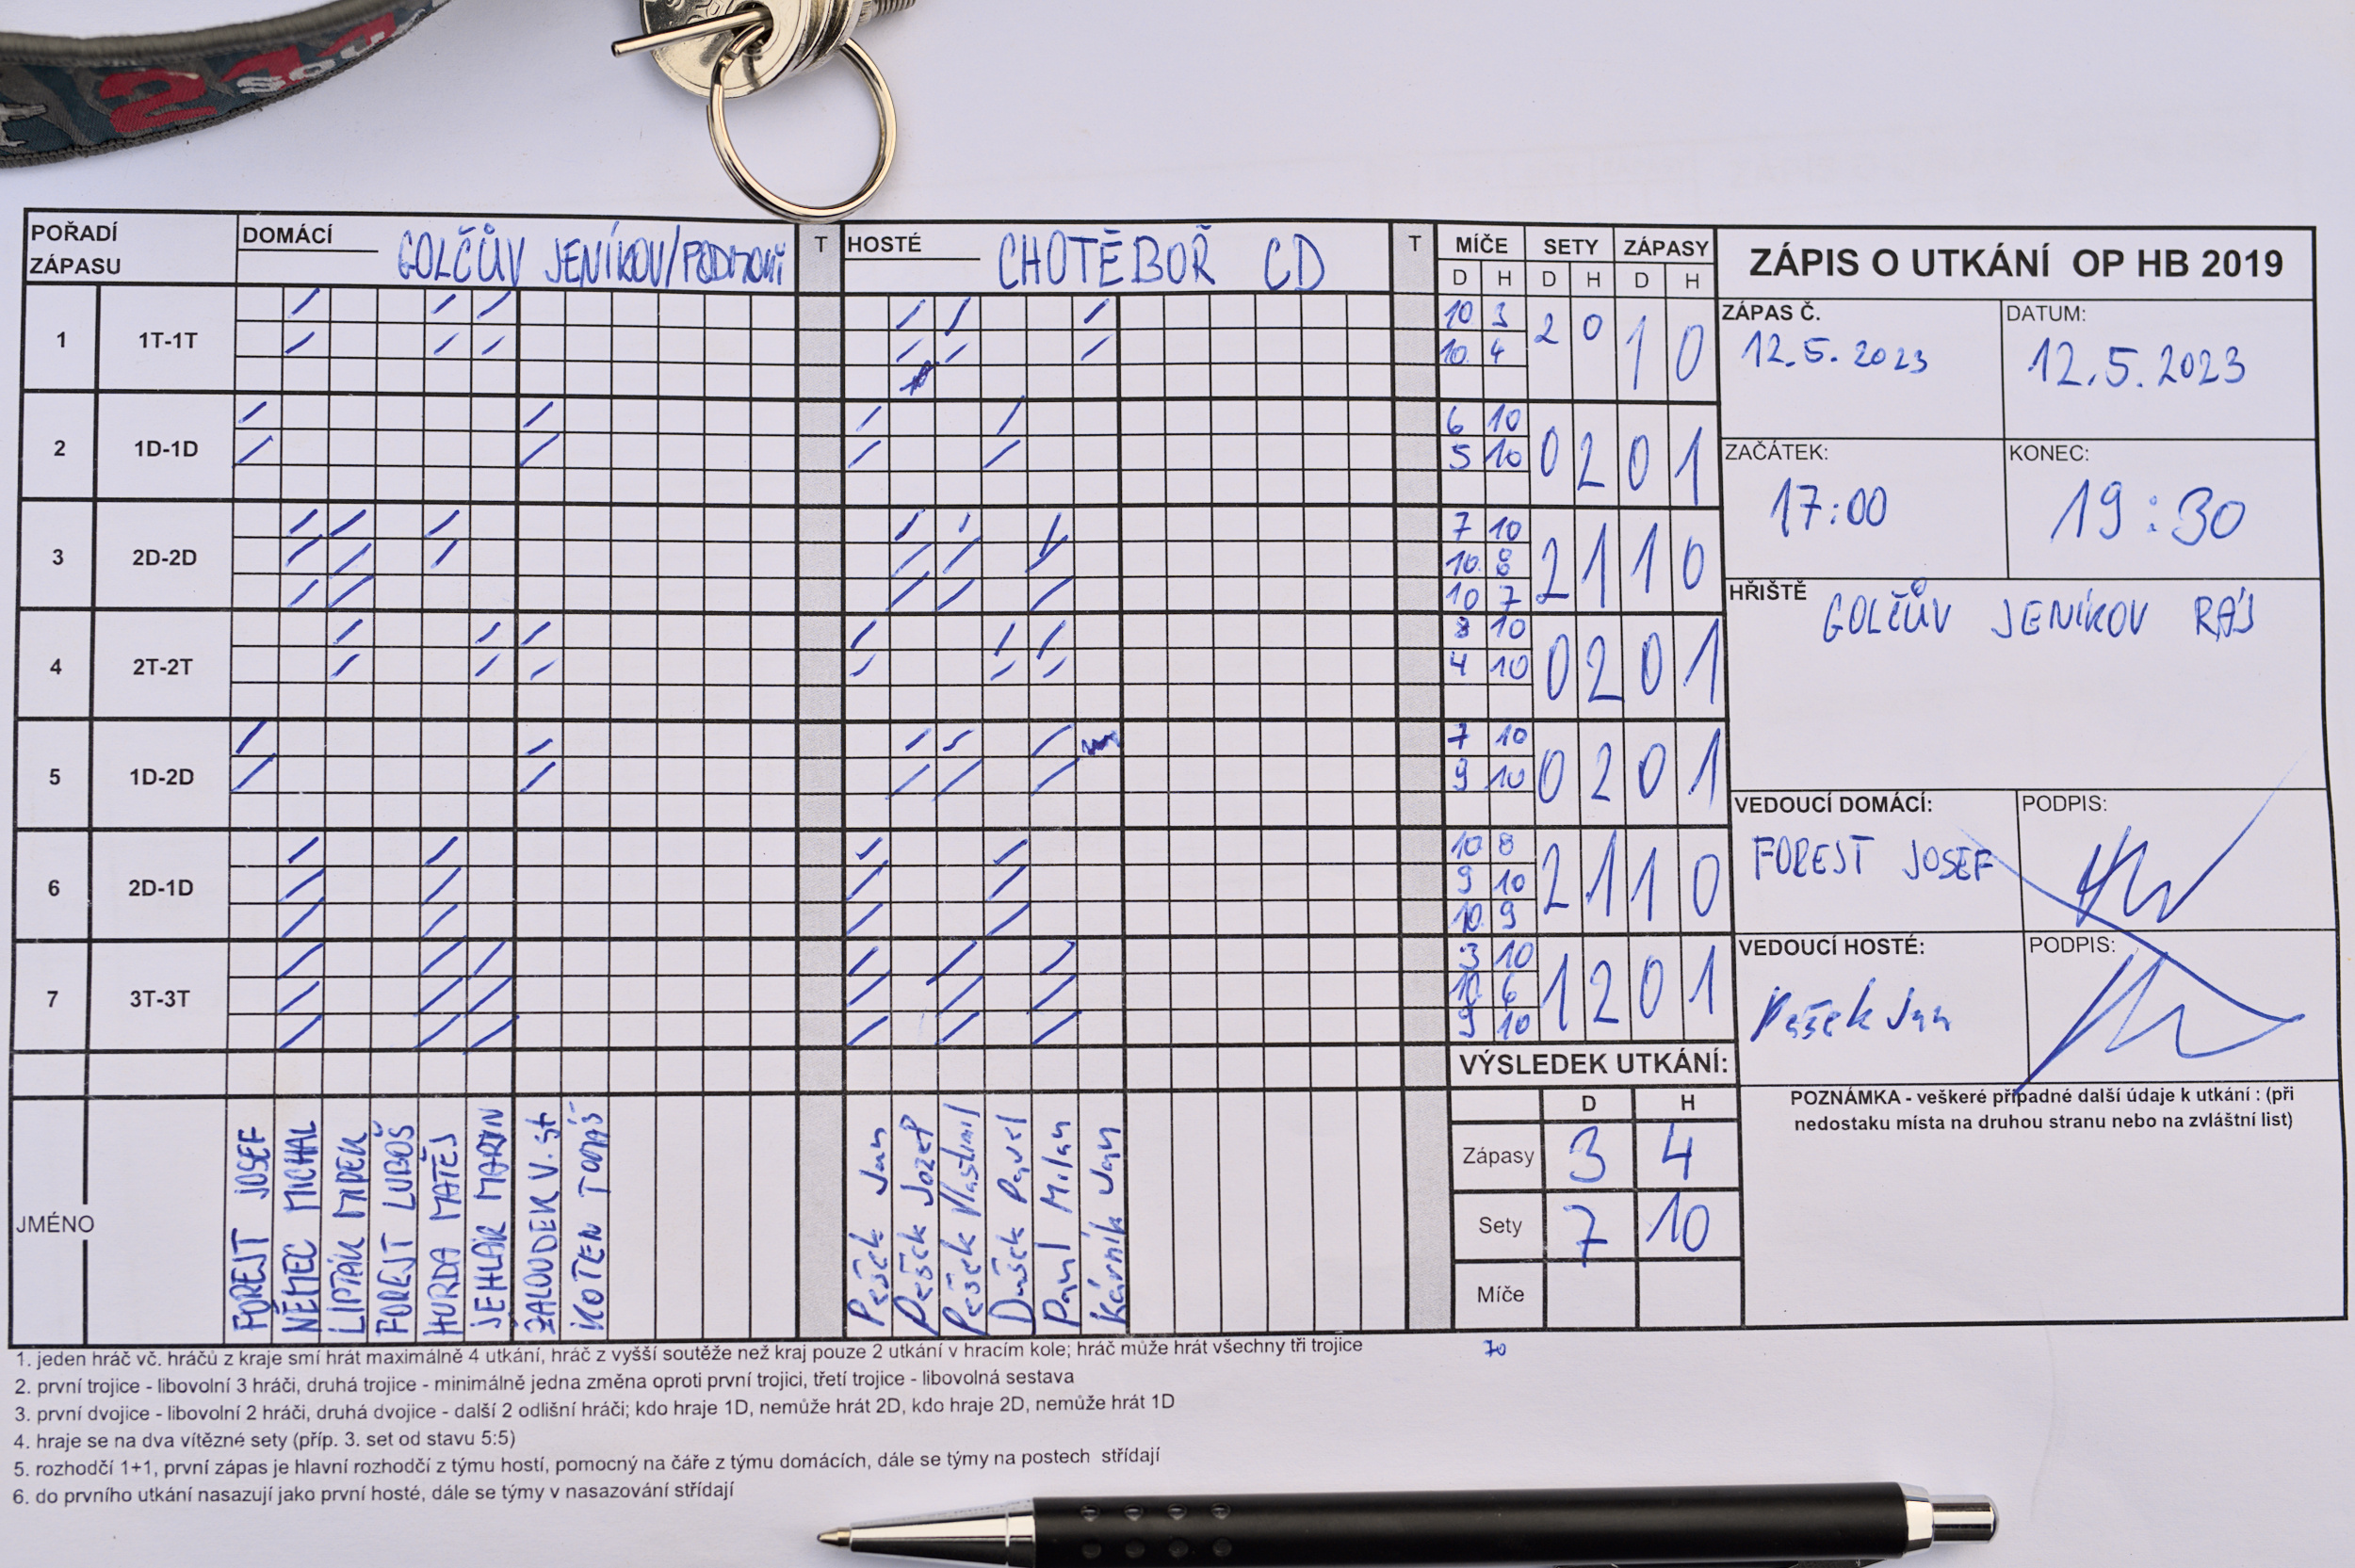 POŘADÍ ZÁPASU
DOMÁCÍ GOLČŮV JENÍKOV/
T
HOSTÉ CHOTĚBOŘ CD
T
MÍČE SETY ZÁPASY
D H D H D H
1 1T-1T
10 3
10 4
2 0 1 0
2 1D-1D
6 10
5 10
0 2 0 1
3 2D-2D
7 10
10 8
10 7
2 1 1 0
4 2T-2T
8 10
4 10
0 2 0 1
5 1D-2D
7 10
9 10
0 2 0 1
6 2D-1D
10 8
9 10
10 9
2 1 1 0
7 3T-3T
3 10
10 6
9 10
1 2 0 1
JMÉNO
FOREJT JOSEF
NĚMEC MICHAL
LIPTÁK
FOREJT LUBOŠ
HURDA MATĚJ
JEHLÁK MARTIN
ŽALOUDEK V. st
KOTEN TOMÁŠ
Pešek Jan
Pešek Jozef
Pešek Vlastimil
Dušek Pavel
Paul Milan
Kárník Jan
VÝSLEDEK UTKÁNÍ:
D H
Zápasy 3 4
Sety 7 10
Míče
70
ZÁPIS O UTKÁNÍ OP HB 2019
ZÁPAS Č. 12.5. 2023
DATUM: 12.5.2023
ZAČÁTEK: 17:00
KONEC: 19:30
HŘIŠTĚ GOLČŮV JENÍKOV RÁJ
VEDOUCÍ DOMÁCÍ: FOREJT JOSEF
PODPIS:
VEDOUCÍ HOSTÉ: Pešek Jan
PODPIS:
POZNÁMKA - veškeré případné další údaje k utkání : (při
nedostaku místa na druhou stranu nebo na zvláštní list)
1. jeden hráč vč. hráčů z kraje smí hrát maximálně 4 utkání, hráč z vyšší soutěže než kraj pouze 2 utkání v hracím kole; hráč může hrát všechny tři trojice
2. první trojice - libovolní 3 hráči, druhá trojice - minimálně jedna změna oproti první trojici, třetí trojice - libovolná sestava
3. první dvojice - libovolní 2 hráči, druhá dvojice - další 2 odlišní hráči; kdo hraje 1D, nemůže hrát 2D, kdo hraje 2D, nemůže hrát 1D
4. hraje se na dva vítězné sety (příp. 3. set od stavu 5:5)
5. rozhodčí 1+1, první zápas je hlavní rozhodčí z týmu hostí, pomocný na čáře z týmu domácích, dále se týmy na postech střídají
6. do prvního utkání nasazují jako první hosté, dále se týmy v nasazování střídají